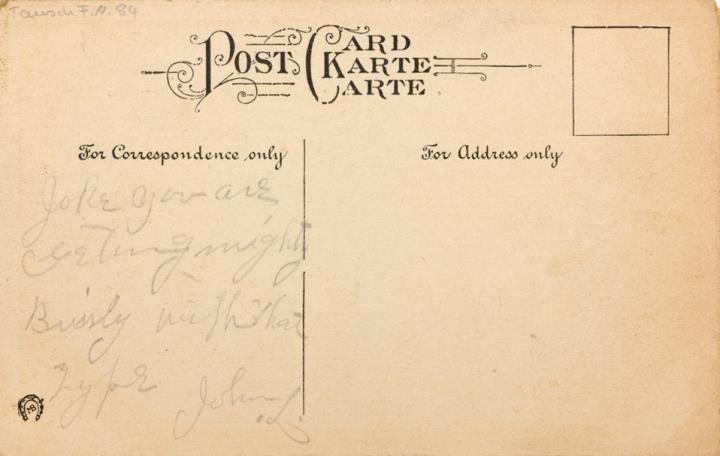 Tausch F. N. 84
POST CARD
KARTE
CARTE
For Correspondence only
For Address only
Joke you are
geting mighty
Biusly with that
type
John L.
MB